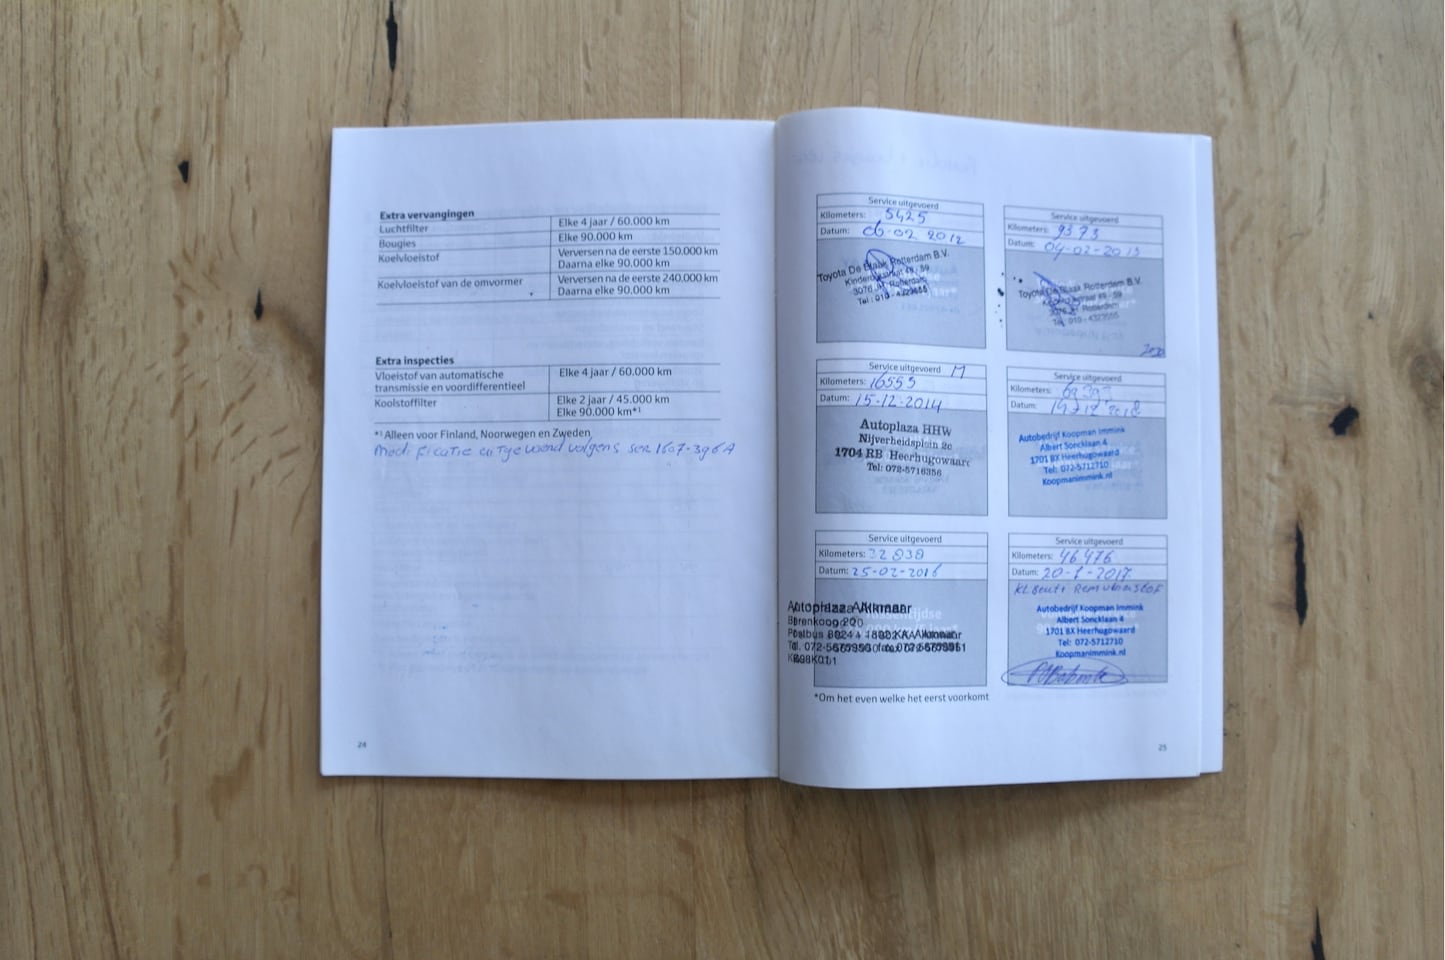 Extra vervangingen
Luchtfilter Elke 4 jaar / 60.000 km
Bougies Elke 90.000 km
Koelvloeistof Verversen na de eerste 150.000 km
Daarna elke 90.000 km
Koelvloeistof van de omvormer Verversen na de eerste 240.000 km
Daarna elke 90.000 km
Extra inspecties
Vloeistof van automatische Elke 4 jaar / 60.000 km
transmissie en voordifferentieel
Koolstoffilter Elke 2 jaar / 45.000 km
Elke 90.000 km*¹
*¹ Alleen voor Finland, Noorwegen en Zweden
Modificatie uitgevoerd volgens
24
Service uitgevoerd
Kilometers: 5425
Datum: 06-02 2012
Toyota De Blaak Rotterdam B.V.
49 - 59
Rotterdam
Tel : 010 - 4323555
Service uitgevoerd
Kilometers: 9373
Datum: 04-02-2013
Toyota De Blaak Rotterdam B.V.
49 - 59
Rotterdam
010 - 4323555
Service uitgevoerd M
Kilometers: 16555
Datum: 15-12-2014
Autoplaza HHW
Nijverheidsplein 2c
1704 RB Heerhugowaard
Tel: 072-5716356
Service uitgevoerd
Kilometers:
Datum:
Autobedrijf Koopman Immink
Albert Soncklaan 4
1701 BX Heerhugowaard
Tel: 072-5712710
Koopmanimmink.nl
Service uitgevoerd
Kilometers: 32838
Datum: 25-02-2016
Autoplaza Alkmaar
Berenkoog 20
Postbus Alkmaar
Service uitgevoerd
Kilometers: 46476
Datum: 20-1-2017
Remvloeistof
Autobedrijf Koopman Immink
Albert Soncklaan 4
1701 BX Heerhugowaard
Tel: 072-5712710
Koopmanimmink.nl
*Om het even welke het eerst voorkomt
25